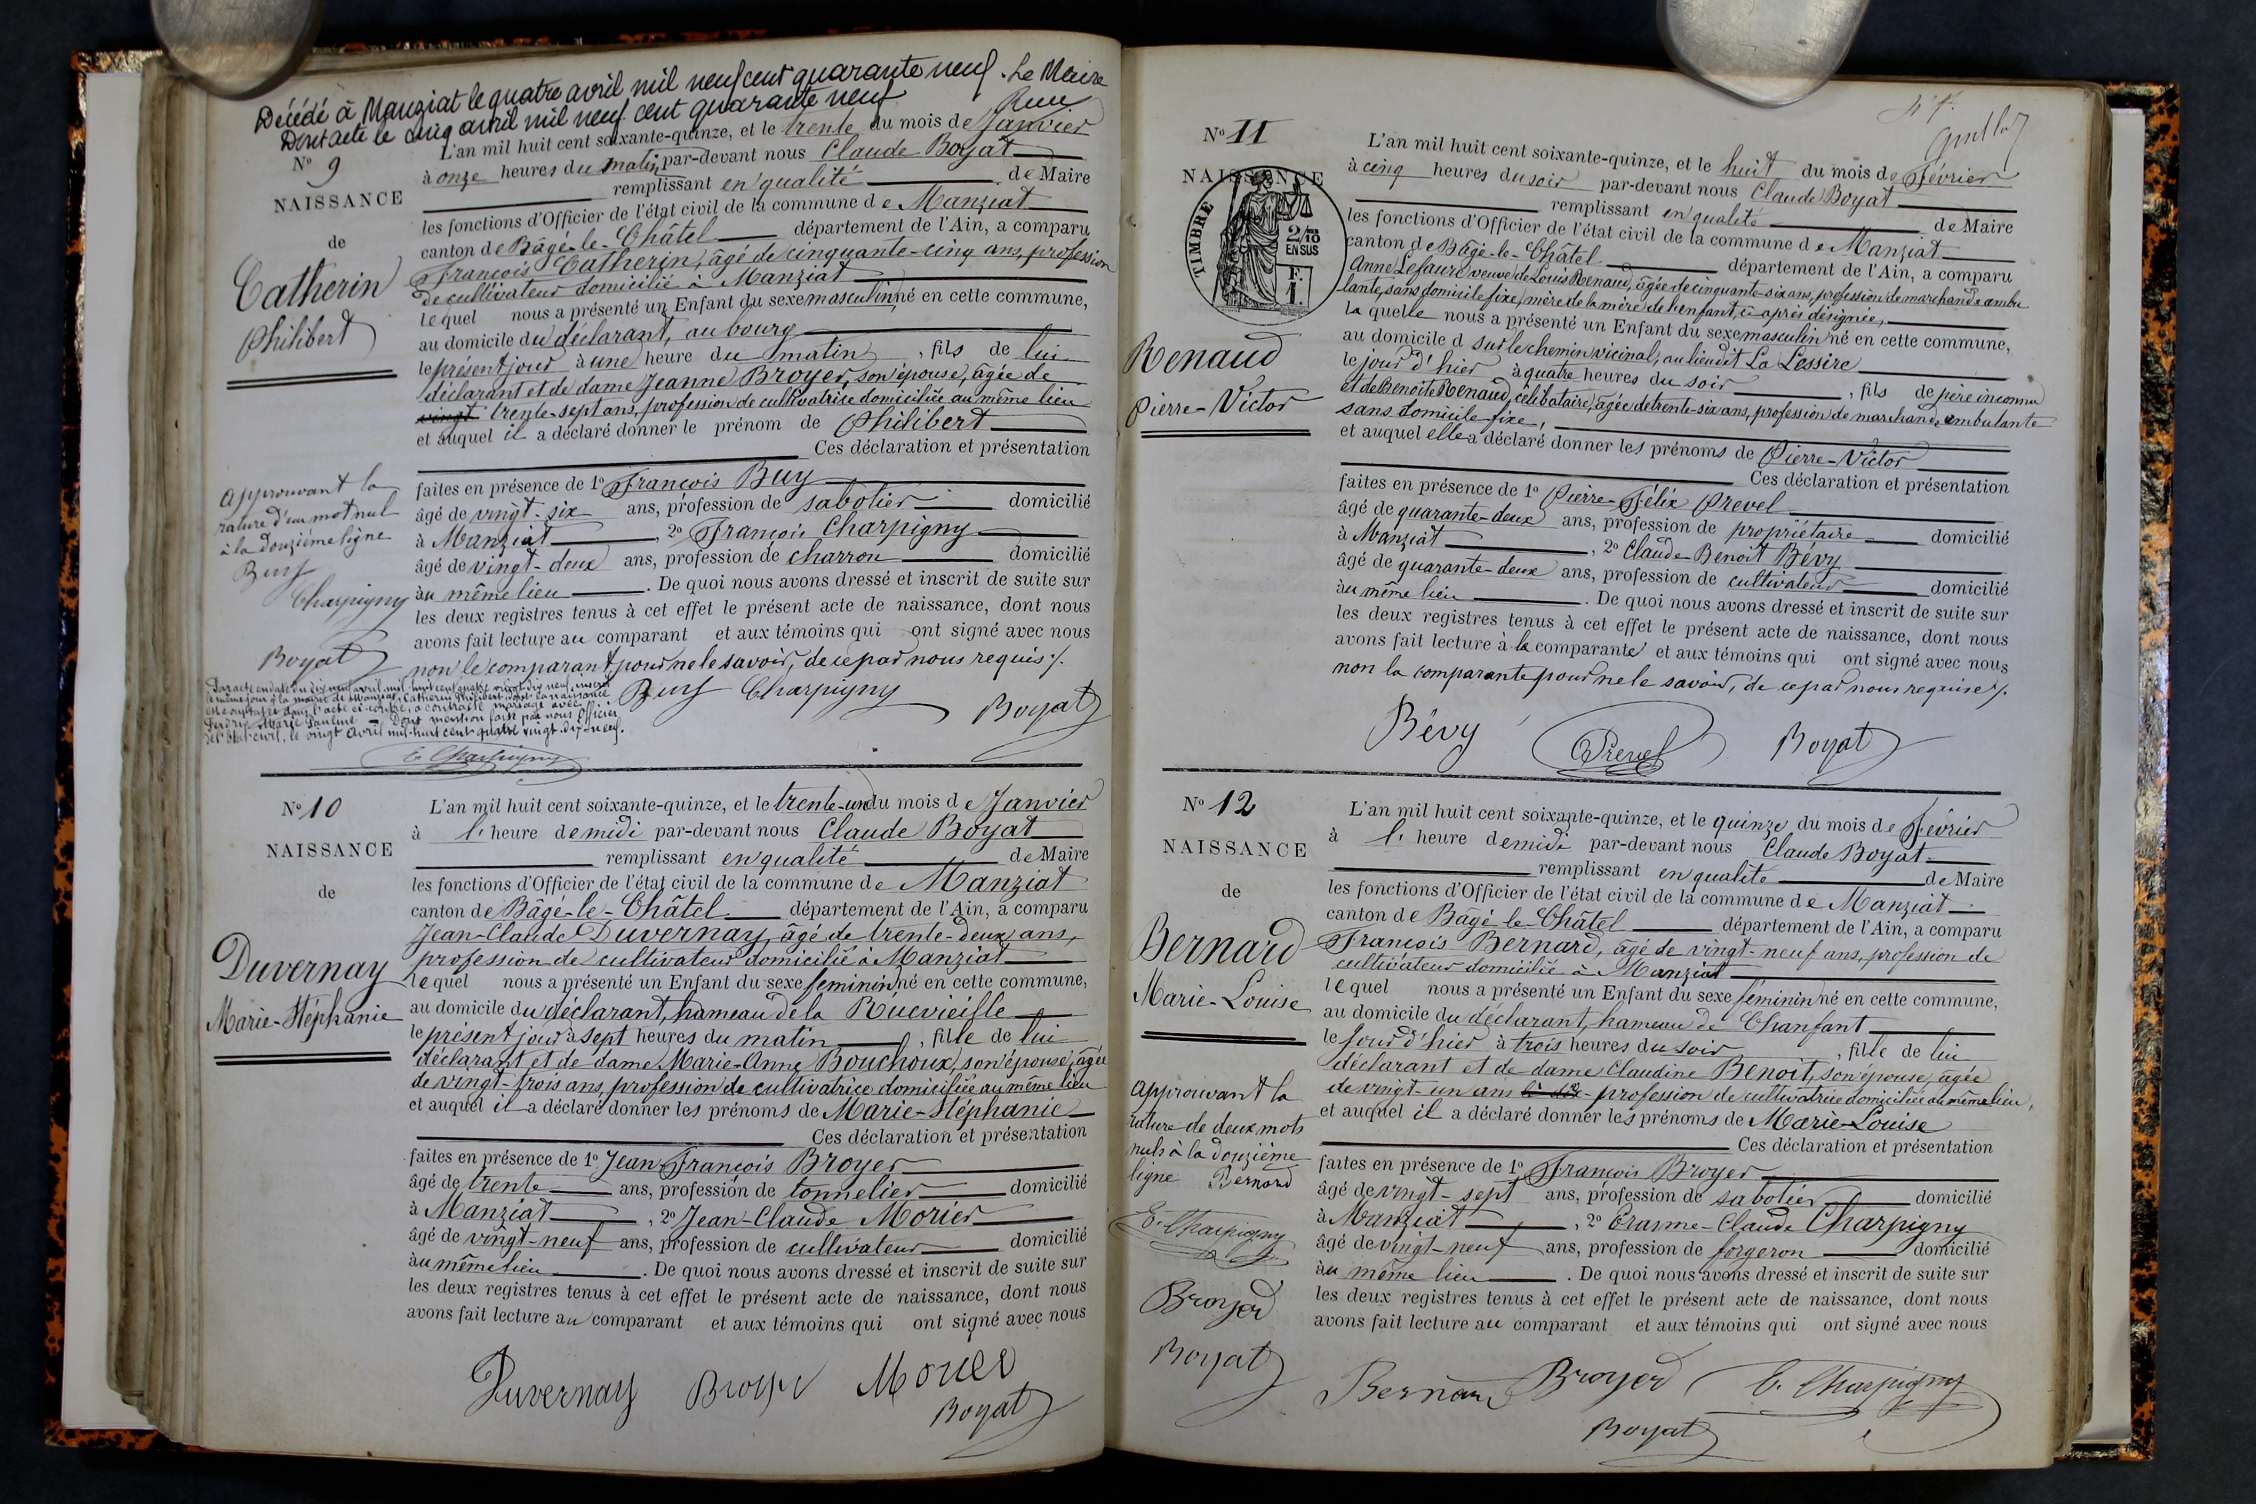 Décédé à Manziat le quatre avril mil neuf cent quarante neuf. Le Maire
Dont acte le cinq avril mil neuf cent quarante neuf
N° 9
NAISSANCE
de
Catherin
Philibert
L'an mil huit cent soixante-quinze, et le trente du mois de Janvier
à onze heures du matin, par-devant nous Claude Boyat
remplissant en qualité de Maire
les fonctions d'Officier de l'état civil de la commune de Manziat
canton de Bâgé-le-Châtel département de l'Ain, a comparu
François Catherin, âgé de cinquante-cinq ans, profession
de cultivateur domicilié à Manziat
lequel nous a présenté un Enfant du sexe masculin, né en cette commune,
au domicile du déclarant, au bourg
le présent jour à une heure du matin, fils de lui
déclarant et de dame Jeanne Broyer, son épouse, âgée de
vingt trente-sept ans, profession de cultivatrice domiciliée au même lieu
et auquel il a déclaré donner le prénom de Philibert
Ces déclaration et présentation
faites en présence de 1° François Buy
âgé de vingt-six ans, profession de sabotier domicilié
à Manziat, 2° François Charpigny
âgé de vingt-deux ans, profession de charron domicilié
au même lieu. De quoi nous avons dressé et inscrit de suite sur
les deux registres tenus à cet effet le présent acte de naissance, dont nous
avons fait lecture au comparant et aux témoins qui ont signé avec nous
non le comparant pour ne le savoir, de ce par nous requis ./.
Buy Charpigny
Boyat
approuvant la
rature d'un mot nul
à la douzième ligne
Buy
Charpigny
Boyat
Par acte en date du dix neuf avril mil huit cent quatre vingt dix neuf, inscrit
le même jour à la mairie de Manziat, Catherin Philibert, dont la naissance
est constatée dans l'acte ci-contre, a contracté mariage avec
Marie Pauline Dont mention faite par nous Officier
de l'état civil, le vingt avril mil huit cent quatre vingt dix neuf.
E. Charpigny
N° 10
NAISSANCE
de
Duvernay
Marie-Stéphanie
L'an mil huit cent soixante-quinze, et le trente-un du mois de Janvier
à l'heure de midi par-devant nous Claude Boyat
remplissant en qualité de Maire
les fonctions d'Officier de l'état civil de la commune de Manziat
canton de Bâgé-le-Châtel département de l'Ain, a comparu
Jean-Claude Duvernay, âgé de trente-deux ans,
profession de cultivateur domicilié à Manziat
lequel nous a présenté un Enfant du sexe féminin né en cette commune,
au domicile du déclarant, hameau de la Ruevieille
le présent jour à sept heures du matin, fille de lui
déclarant et de dame Marie-Anne Bouchoux, son épouse, âgée
de vingt-trois ans, profession de cultivatrice domiciliée au même lieu
et auquel il a déclaré donner les prénoms de Marie-Stéphanie
Ces déclaration et présentation
faites en présence de 1° Jean-François Broyer
âgé de trente ans, profession de tonnelier domicilié
à Manziat, 2° Jean-Claude Morier
âgé de vingt-neuf ans, profession de cultivateur domicilié
au même lieu. De quoi nous avons dressé et inscrit de suite sur
les deux registres tenus à cet effet le présent acte de naissance, dont nous
avons fait lecture au comparant et aux témoins qui ont signé avec nous
Duvernay Broyer Morier
Boyat
N° 11
NAISSANCE
TIMBRE
2/10
EN SUS
Renaud
Pierre-Victor
L'an mil huit cent soixante-quinze, et le huit du mois de Février
à cinq heures du soir par-devant nous Claude Boyat
remplissant en qualité de Maire
les fonctions d'Officier de l'état civil de la commune de Manziat
canton de Bâgé-le-Châtel département de l'Ain, a comparu
Anne Lefaure veuve de Louis Renaud, âgée de cinquante-six ans, profession de marchande ambu
lante, sans domicile fixe, mère de la mère de l'enfant, ci-après désignée,
la quelle nous a présenté un Enfant du sexe masculin né en cette commune,
au domicile d sur le chemin vicinal, au lieu dit La Lessire
le jour d'hier à quatre heures du soir, fils de père inconnu
et de Benoite Renaud, célibataire, âgée de trente-six ans, profession de marchande ambulante
sans domicile fixe,
et auquel elle a déclaré donner les prénoms de Pierre-Victor
Ces déclaration et présentation
faites en présence de 1° Pierre-Félix Prevel
âgé de quarante-deux ans, profession de propriétaire domicilié
à Manziat, 2° Claude-Benoit Bévy
âgé de quarante-deux ans, profession de cultivateur domicilié
au même lieu. De quoi nous avons dressé et inscrit de suite sur
les deux registres tenus à cet effet le présent acte de naissance, dont nous
avons fait lecture à la comparante et aux témoins qui ont signé avec nous
non la comparante pour ne le savoir, de ce par nous requise ./.
Bévy Prevel Boyat
N° 12
NAISSANCE
de
Bernard
Marie-Louise
L'an mil huit cent soixante-quinze, et le quinze du mois de Février
à l'heure de midi par-devant nous Claude Boyat
remplissant en qualité de Maire
les fonctions d'Officier de l'état civil de la commune de Manziat
canton de Bâgé-le-Châtel département de l'Ain, a comparu
François Bernard, âgé de vingt-neuf ans, profession de
cultivateur domicilié à Manziat
lequel nous a présenté un Enfant du sexe féminin né en cette commune,
au domicile du déclarant, hameau de Chanfant
le Jour d'hier à trois heures du soir, fille de lui
déclarant et de dame Claudine Benoit, son épouse, âgée
de vingt-un ans profession de cultivatrice domiciliée au même lieu,
et auquel il a déclaré donner les prénoms de Marie-Louise
Ces déclaration et présentation
faites en présence de 1° François Broyer
âgé de vingt-sept ans, profession de sabotier domicilié
à Manziat, 2° Erasme-Claude Charpigny
âgé de vingt-neuf ans, profession de forgeron domicilié
au même lieu. De quoi nous avons dressé et inscrit de suite sur
les deux registres tenus à cet effet le présent acte de naissance, dont nous
avons fait lecture au comparant et aux témoins qui ont signé avec nous
Bernard Broyer E. Charpigny
Boyat
approuvant la
rature de deux mots
nuls à la douzième
ligne Bernard
E. Charpigny
Broyer
Boyat